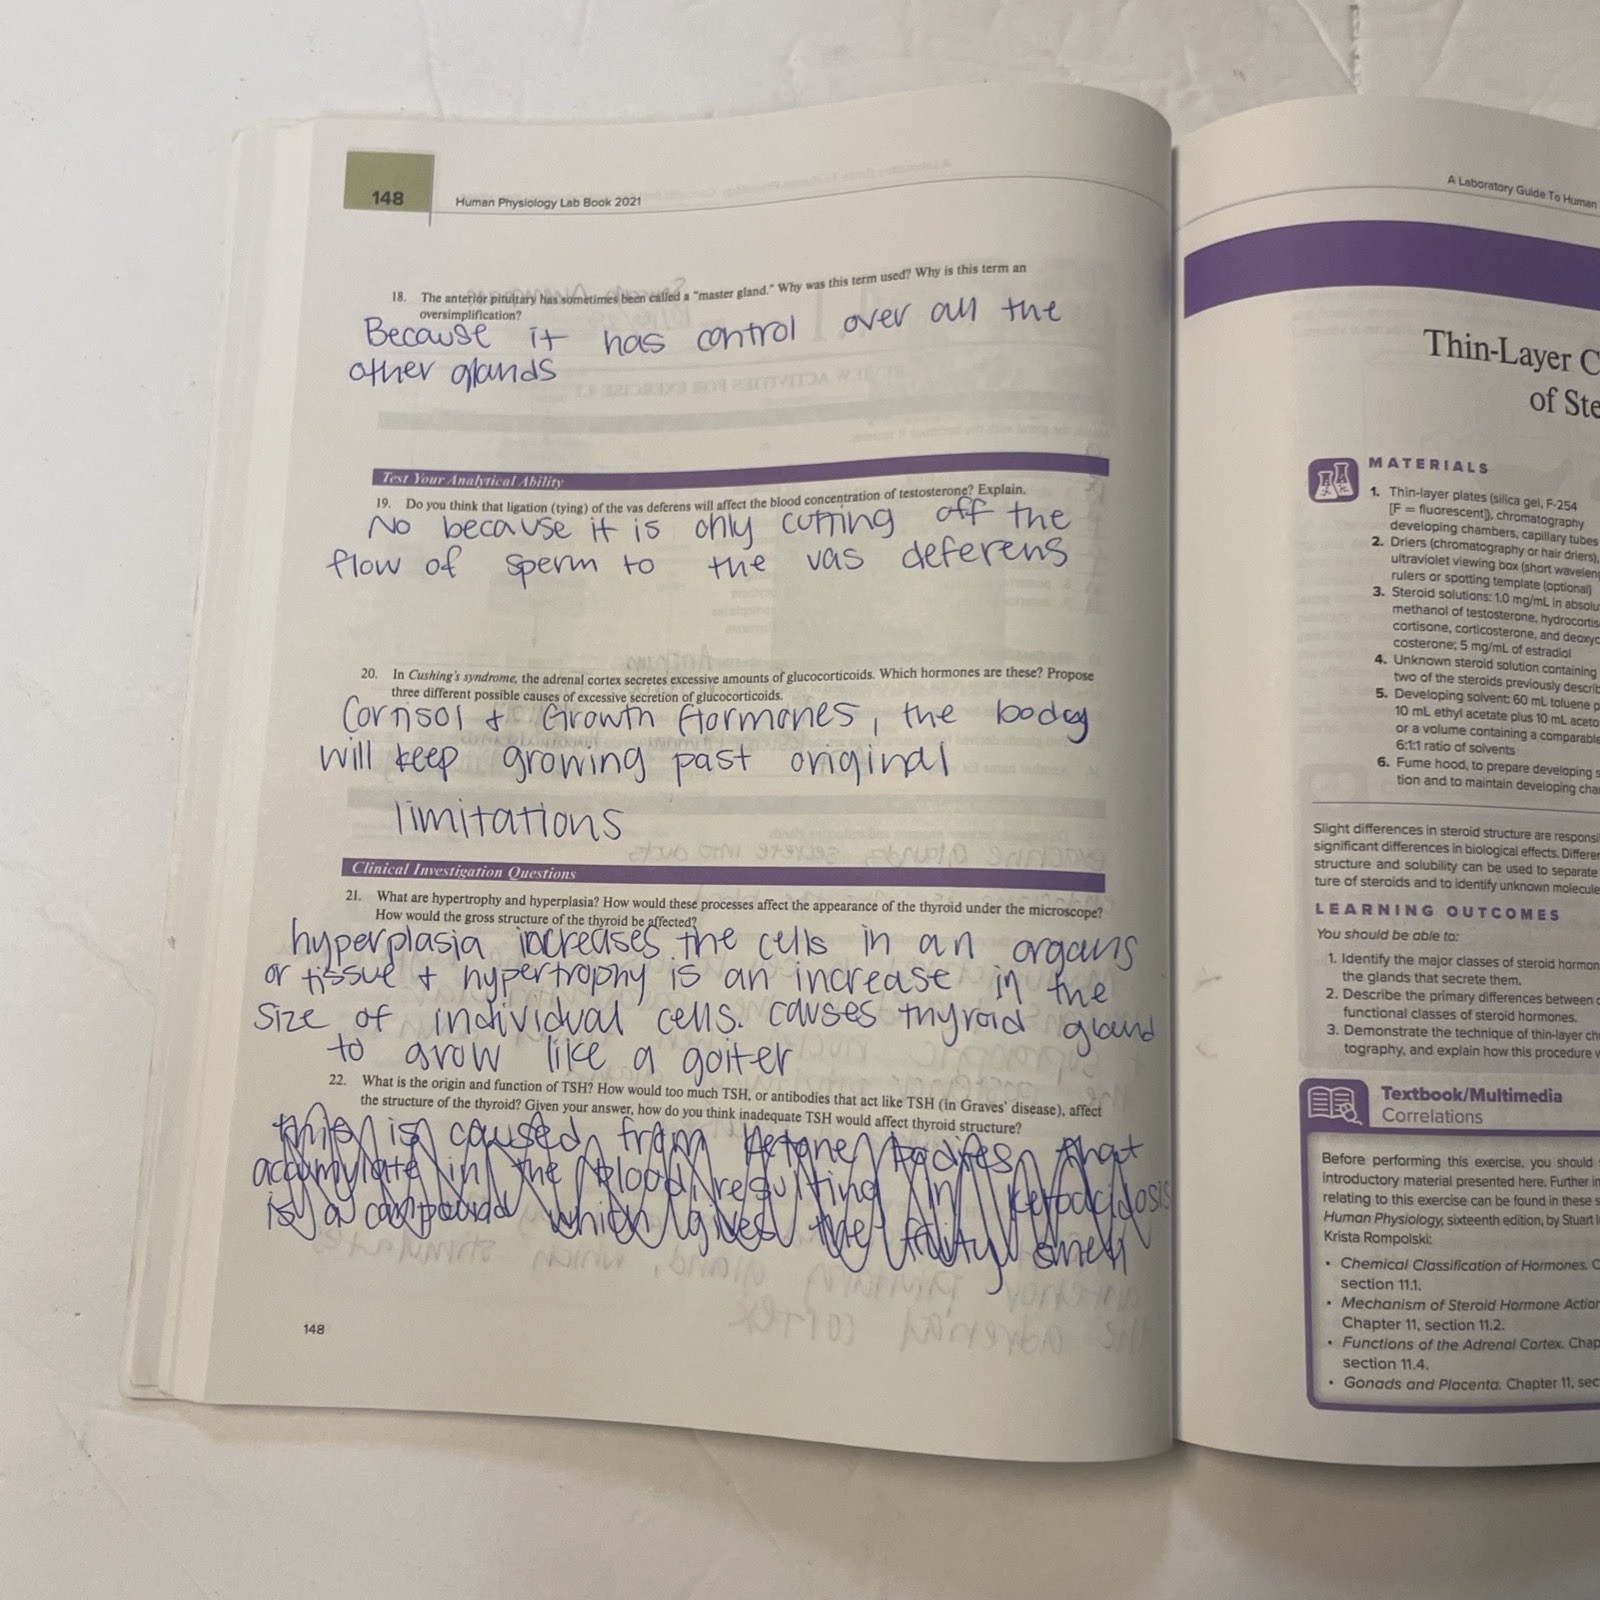 148
Human Physiology Lab Book 2021
18. The anterior pituitary has sometimes been called a "master gland." Why was this term used? Why is this term an
oversimplification?
Because it has control over all the
other glands
Test Your Analytical Ability
19. Do you think that ligation (tying) of the vas deferens will affect the blood concentration of testosterone? Explain.
No because it is only cutting off the
flow of sperm to the vas deferens
20. In Cushing's syndrome, the adrenal cortex secretes excessive amounts of glucocorticoids. Which hormones are these? Propose
three different possible causes of excessive secretion of glucocorticoids.
Cortisol + Growth Hormones, the body
will keep growing past original
limitations
Clinical Investigation Questions
21. What are hypertrophy and hyperplasia? How would these processes affect the appearance of the thyroid under the microscope?
How would the gross structure of the thyroid be affected?
hyperplasia increases the cells in an organs
or tissue + hypertrophy is an increase in the
size of individual cells. causes thyroid gland
to grow like a goiter
22. What is the origin and function of TSH? How would too much TSH, or antibodies that act like TSH (in Graves' disease), affect
the structure of the thyroid? Given your answer, how do you think inadequate TSH would affect thyroid structure?
this is caused from ketone bodies that
accumulate in the blood resulting in ketoacidosis
is a compound which gives the fruity smell
148
A Laboratory Guide To Human
Thin-Layer C
of Ste
MATERIALS
1. Thin-layer plates (silica gel, F-254
[F = fluorescent]), chromatography
developing chambers, capillary tubes
2. Driers (chromatography or hair driers),
ultraviolet viewing box (short wavelen
rulers or spotting template (optional)
3. Steroid solutions: 1.0 mg/mL in absolu
methanol of testosterone, hydrocortis
cortisone, corticosterone, and deoxyc
costerone; 5 mg/mL of estradiol
4. Unknown steroid solution containing
two of the steroids previously describ
5. Developing solvent: 60 mL toluene p
10 mL ethyl acetate plus 10 mL aceto
or a volume containing a comparable
6:1:1 ratio of solvents
6. Fume hood, to prepare developing s
tion and to maintain developing cha
Slight differences in steroid structure are responsi
significant differences in biological effects. Differen
structure and solubility can be used to separate
ture of steroids and to identify unknown molecule
LEARNING OUTCOMES
You should be able to:
1. Identify the major classes of steroid hormon
the glands that secrete them.
2. Describe the primary differences between
functional classes of steroid hormones.
3. Demonstrate the technique of thin-layer ch
tography, and explain how this procedure
Textbook/Multimedia
Correlations
Before performing this exercise, you should
introductory material presented here. Further in
relating to this exercise can be found in these s
Human Physiology, sixteenth edition, by Stuart I
Krista Rompolski:
• Chemical Classification of Hormones. C
section 11.1.
• Mechanism of Steroid Hormone Action
Chapter 11, section 11.2.
• Functions of the Adrenal Cortex. Chap
section 11.4.
• Gonads and Placenta. Chapter 11, sec